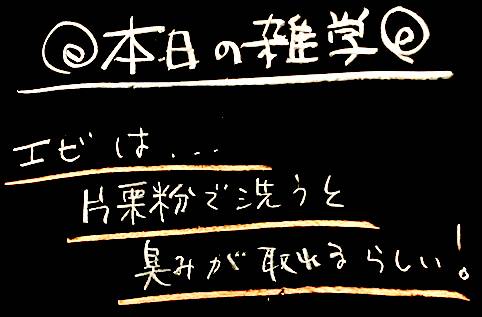 ◎本日の雑学◎
エビは...
片栗粉で洗うと
臭みが取れるらしい!